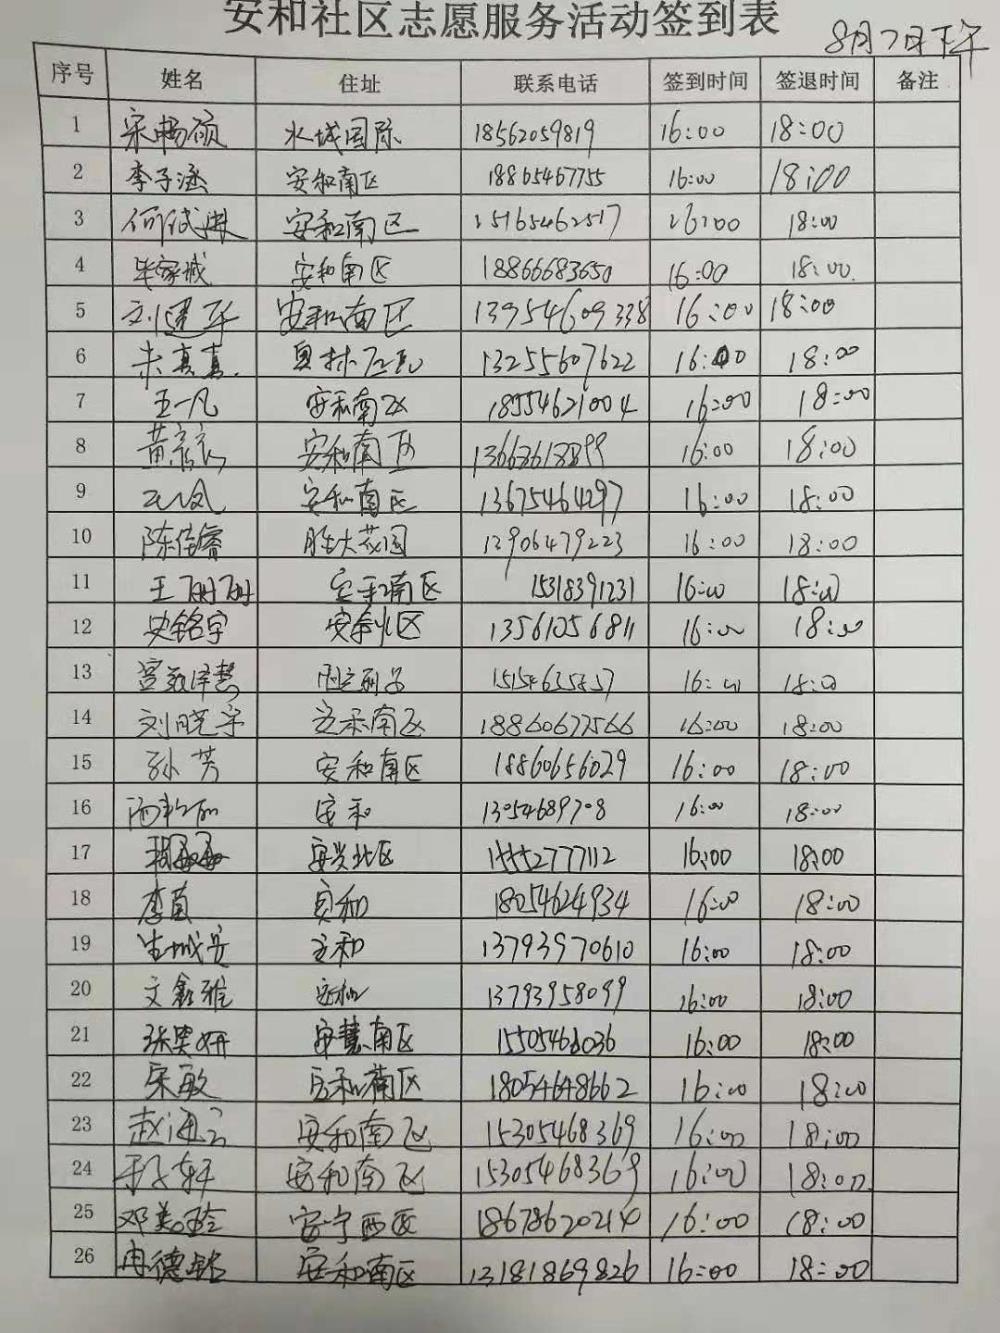 安和社区志愿服务活动签到表
8月7日下午
序号 姓名 住址 联系电话 签到时间 签退时间 备注
1 宋畅硕 水城国际 18562059819 16:00 18:00
2 李子涵 安和南区 18865467755 16:00 18:00
3 安和南区 15165462517 16:00 18:00
4 毕家诚 安和南区 18866683650 16:00 18:00
5 刘建华 安和南区 13954609338 16:00 18:00
6 朱真真 13255607622 16:00 18:00
7 王一凡 安和南区 18554621004 16:00 18:00
8 安和南区 16:00 18:00
9 安和南区 13675464297 16:00 18:00
10 陈佳睿 胜大花园 13906479223 16:00 18:00
11 王丽丽 安和南区 15318391231 16:00 18:00
12 史铭宇 13561056811 16:00 18:00
13 16:00 18:00
14 刘晓宇 安和南区 18860677566 16:00 18:00
15 孙芳 安和南区 18860656029 16:00 18:00
16 安和 13054689708 16:00 18:00
17 安兴北区 15552777112 16:00 18:00
18 李茵 安和 18054624934 16:00 18:00
19 安和 13793970610 16:00 18:00
20 文鑫雅 安和 13793958099 16:00 18:00
21 张昊妍 安慧南区 15505468036 16:00 18:00
22 宋敏 安和南区 18054648662 16:00 18:00
23 安和南区 15305468369 16:00 18:00
24 安和南区 15305468369 16:00 18:00
25 邓美玲 安宁西区 18678620214 16:00 18:00
26 冉德铭 安和南区 13181869826 16:00 18:00